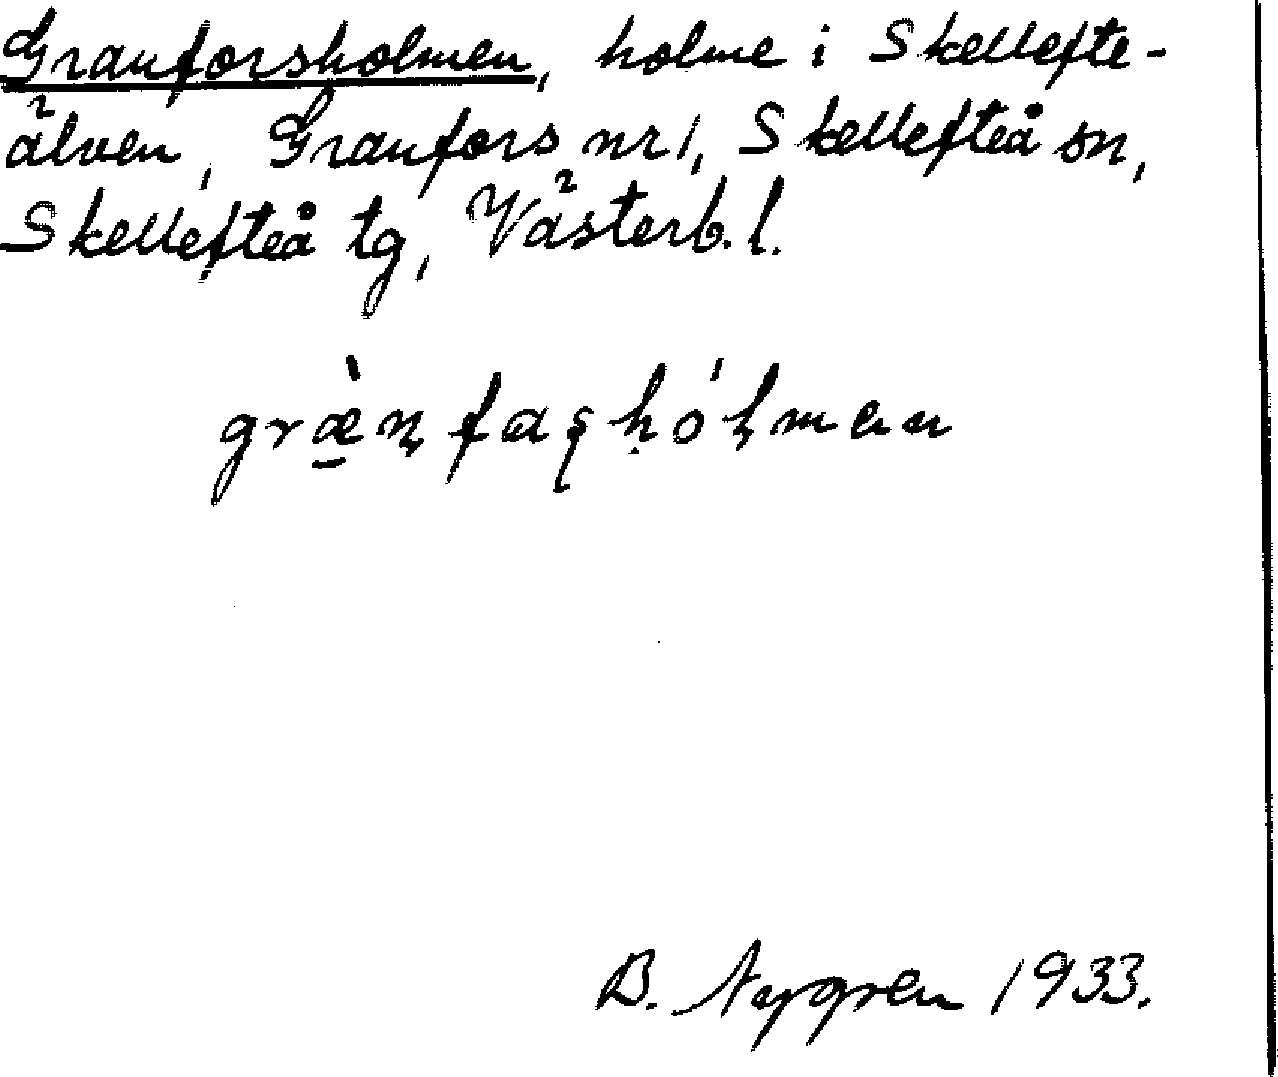 Granforsholmen, holme i Skellefte-
älven, Granfors nr 1, Skellefteå sn,
Skellefteå tg, Västerb. l.
B. Nygren 1933.